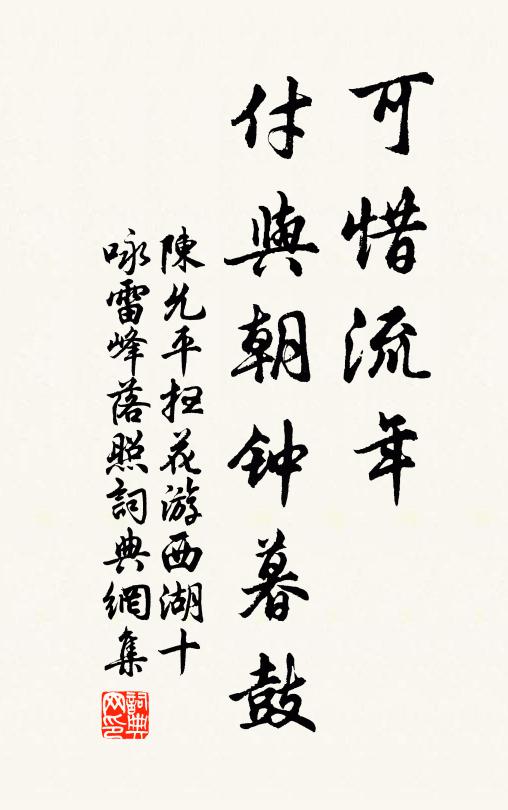 可惜流年
付與朝钟暮鼓
陳允平扫花游西湖十
咏雷峰落照詞典網集
詞典
网印